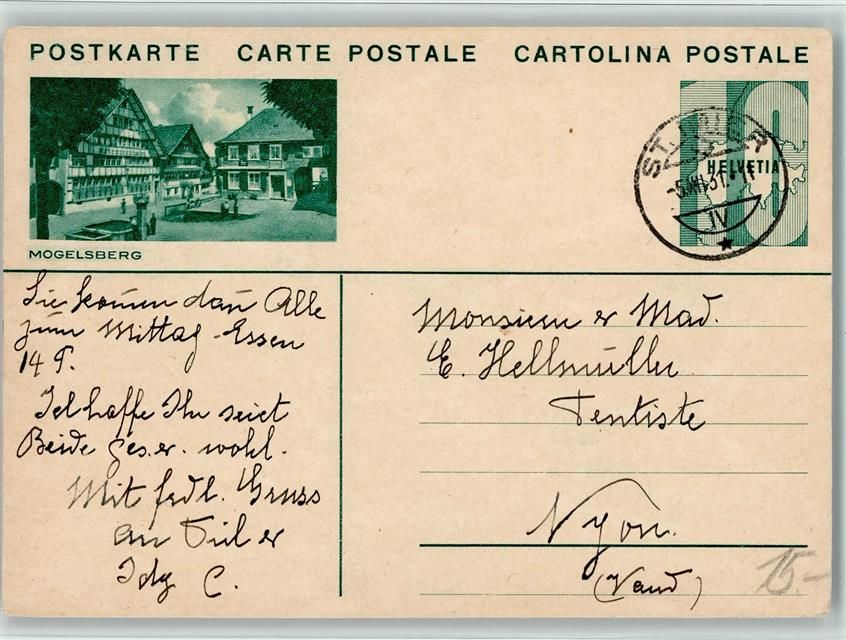 POSTKARTE CARTE POSTALE CARTOLINA POSTALE
HELVETIA
-5.XII.31.
IV
MOGELSBERG
Sie komen dan Alle
zum Mittag-Essen
14 P.
Ich hoffe Ihr seiet
Beide ges. er. wohl.
Mit frdl. Gruss
an
Idy C.
Monsieur er Mad.
E. Hellmüller
Dentiste
Nyon.
(Vaud)
15.-